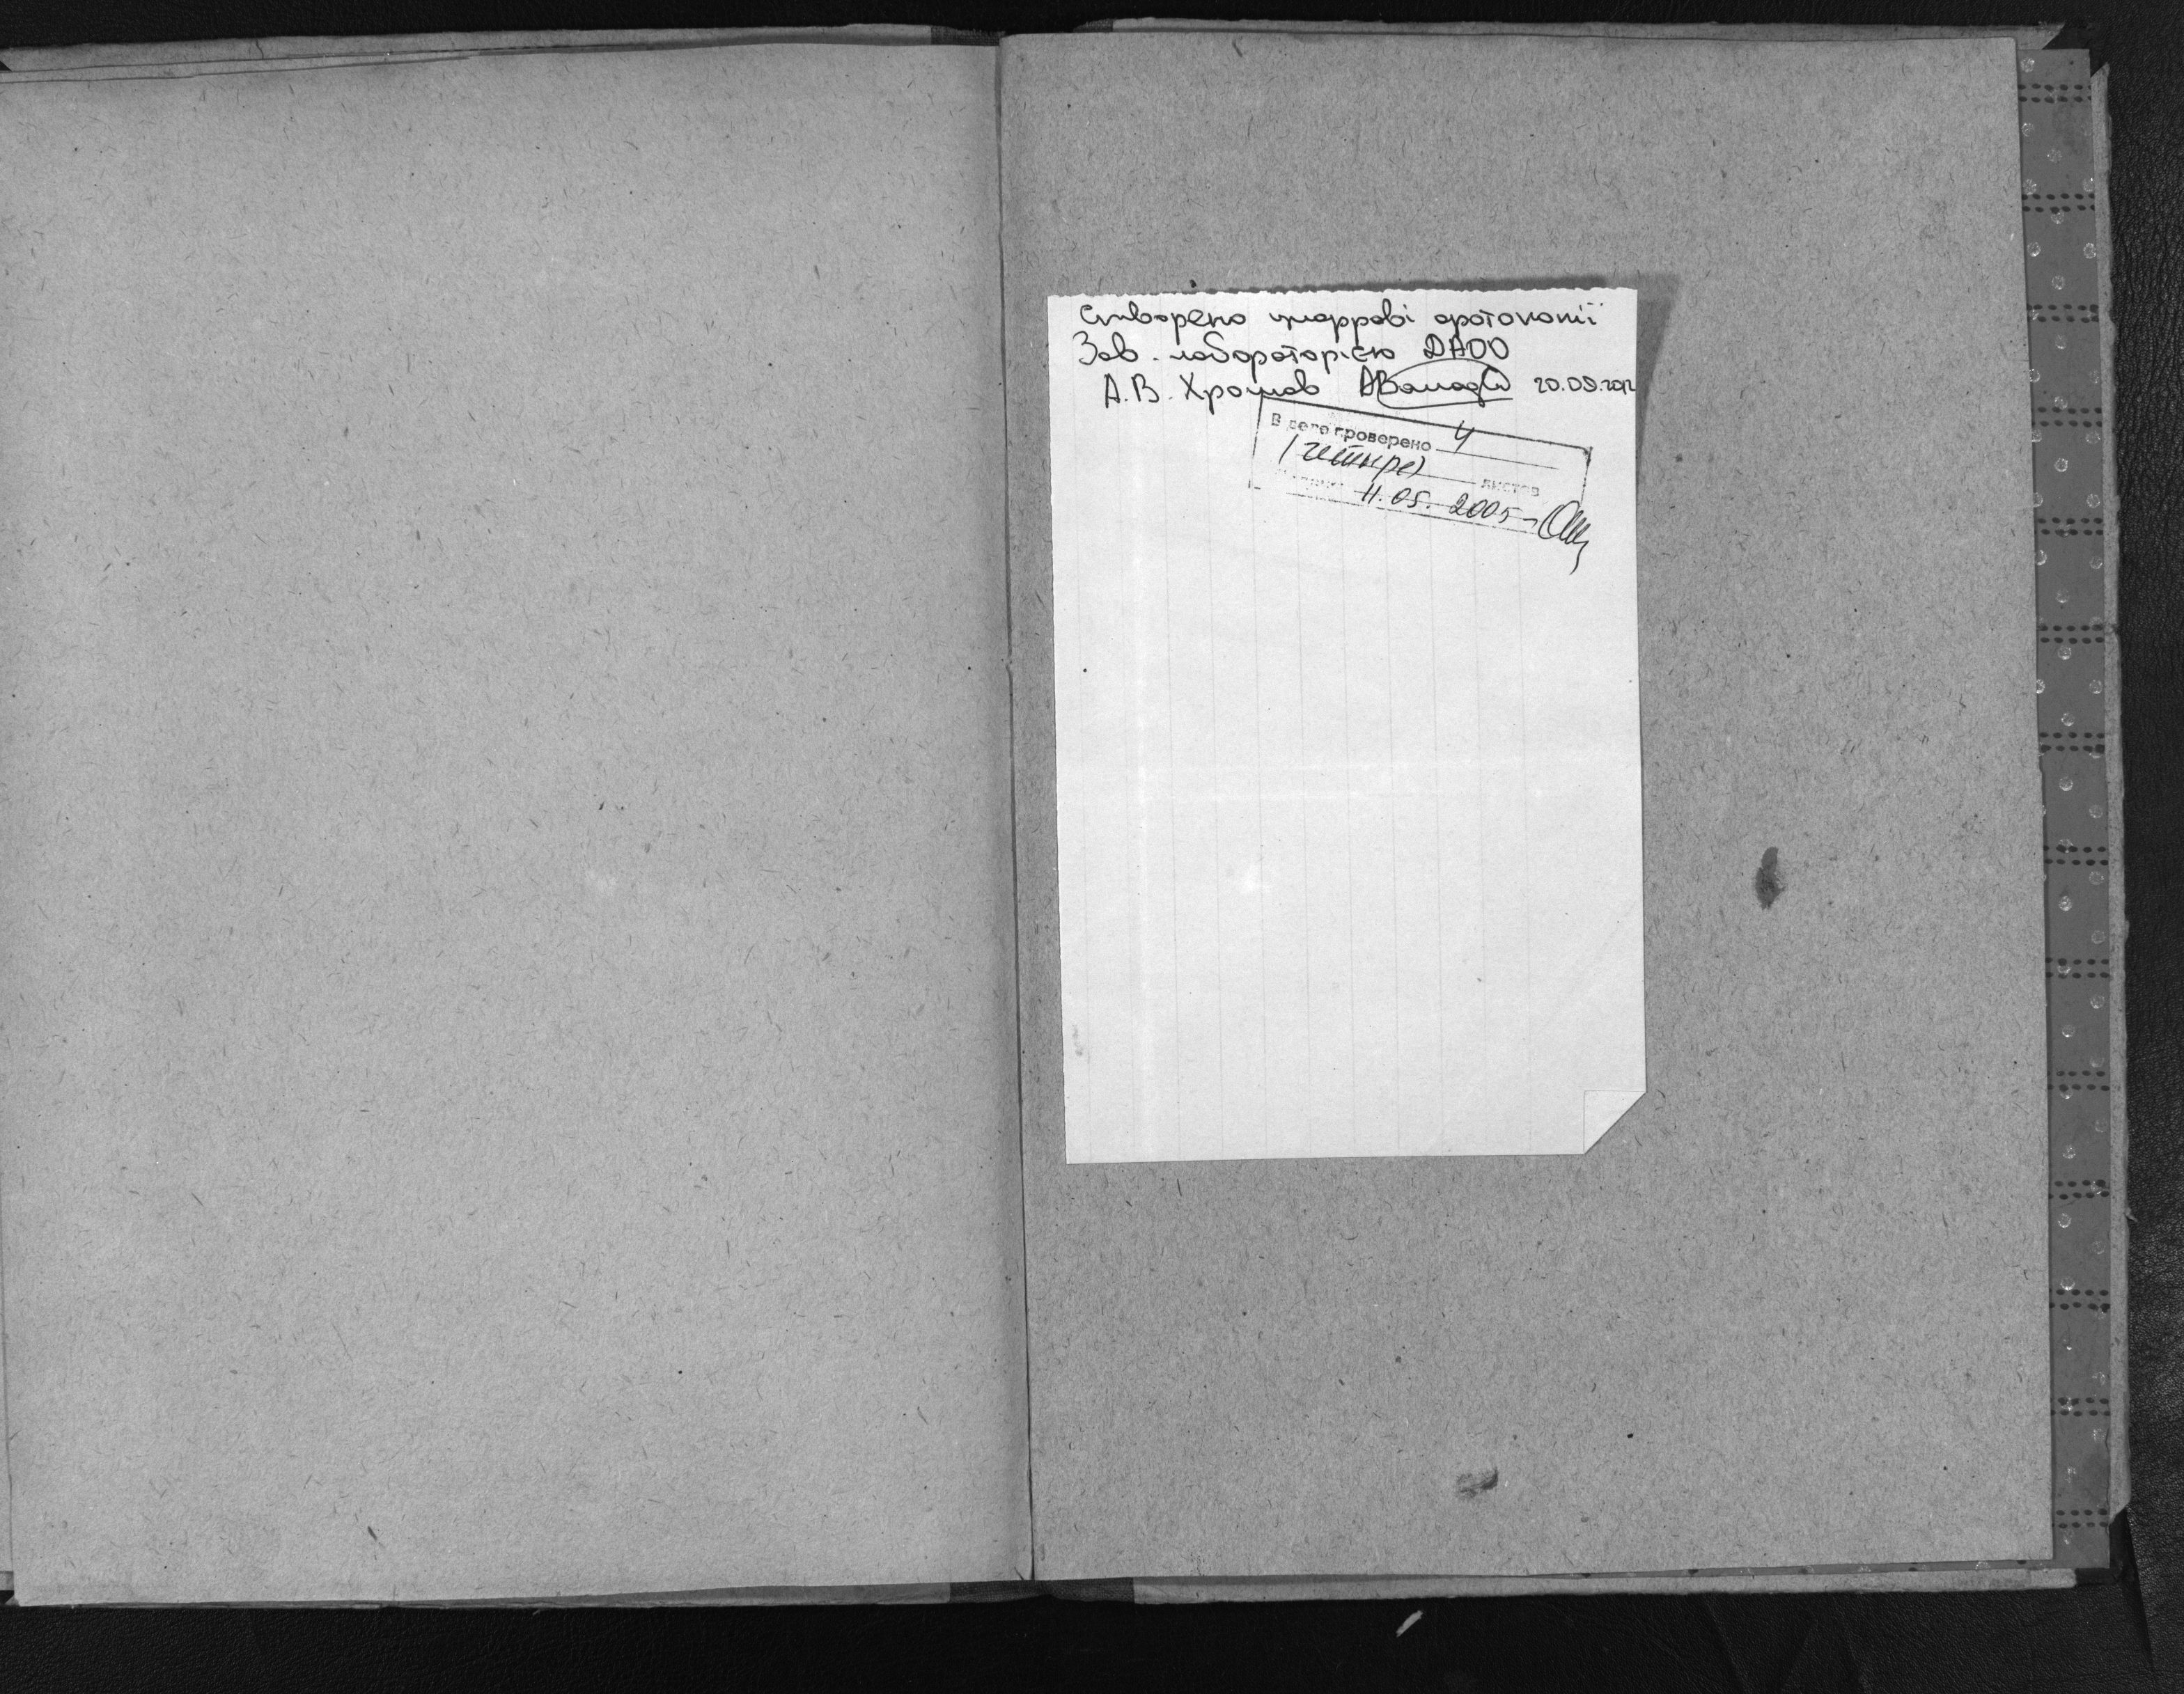 Створено цифрові фотокопії
Зав. лабораторією ДАОО
А.В. Хромов 20.09.2012
В деле проверено 4
(четыре) листов
11.05.2005